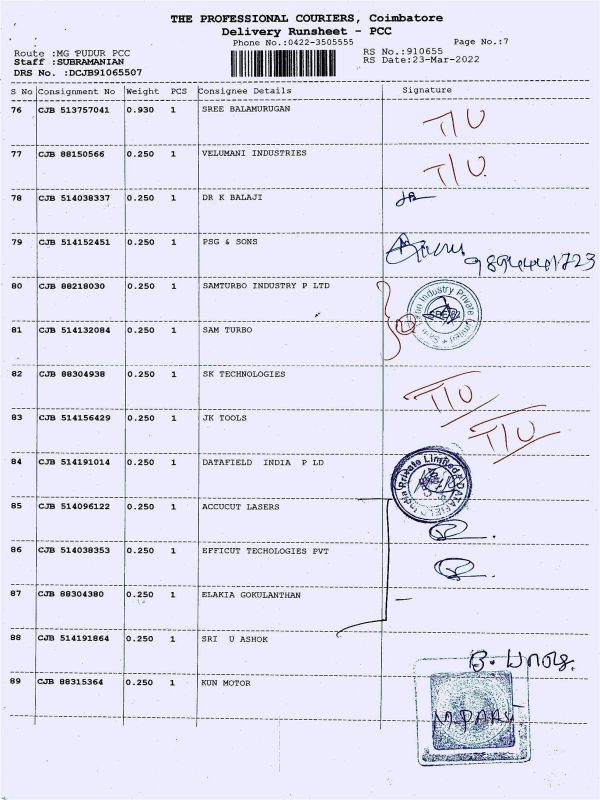 THE PROFESSIONAL COURIERS, Coimbatore
Delivery Runsheet - PCC
Phone No.:0422-3505555 Page No.:7
Route :MG PUDUR PCC RS No.:910655
Staff :SUBRAMANIAN RS Date:23-Mar-2022
DRS No. :DCJB91065507
S No Consignment No Weight PCS Consignee Details Signature
76 CJB 513757041 0.930 1 SREE BALAMURUGAN T/U
77 CJB 88150566 0.250 1 VELUMANI INDUSTRIES T/U
78 CJB 514038337 0.250 1 DR K BALAJI
79 CJB 514152451 0.250 1 PSG & SONS
80 CJB 88218030 0.250 1 SAMTURBO INDUSTRY P LTD
81 CJB 514132084 0.250 1 SAM TURBO
82 CJB 88304938 0.250 1 SK TECHNOLOGIES T/U
83 CJB 514156429 0.250 1 JK TOOLS T/U
84 CJB 514191014 0.250 1 DATAFIELD INDIA P LD
85 CJB 514096122 0.250 1 ACCUCUT LASERS
86 CJB 514038353 0.250 1 EFFICUT TECHOLOGIES PVT
87 CJB 88304380 0.250 1 ELAKIA GOKULANTHAN
88 CJB 514191864 0.250 1 SRI U ASHOK
89 CJB 88315364 0.250 1 KUN MOTOR